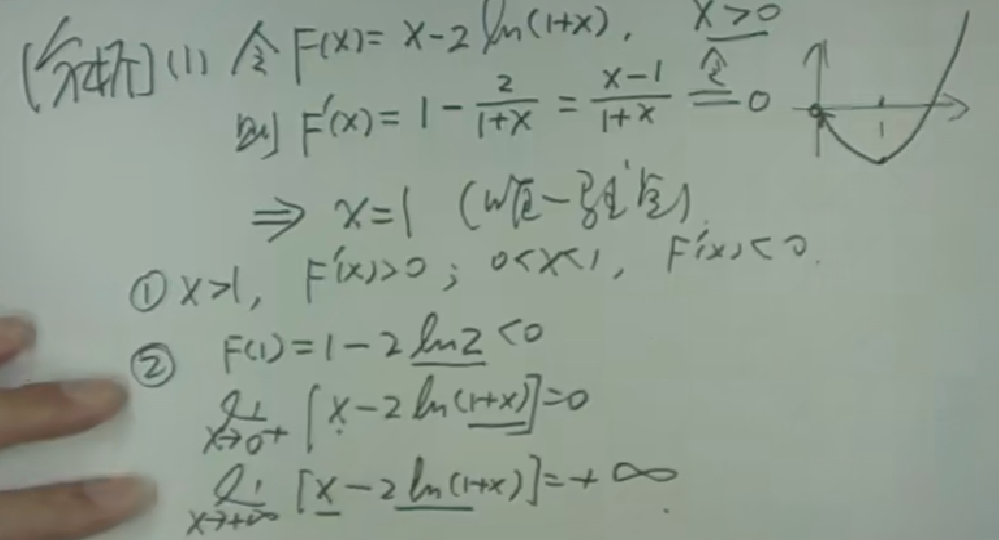 [分析] (1) 令 F(x) = x - 2 ln(1+x), x > 0
则 F'(x) = 1 - 2/(1+x) = (x-1)/(1+x) 令= 0
⇒ x = 1 (唯一驻点)
① x>1, F'(x)>0; 0<x<1, F'(x)<0.
② F(1) = 1 - 2 ln2 < 0
lim x→0+ [x - 2 ln(1+x)] = 0
lim x→+∞ [x - 2 ln(1+x)] = +∞
1